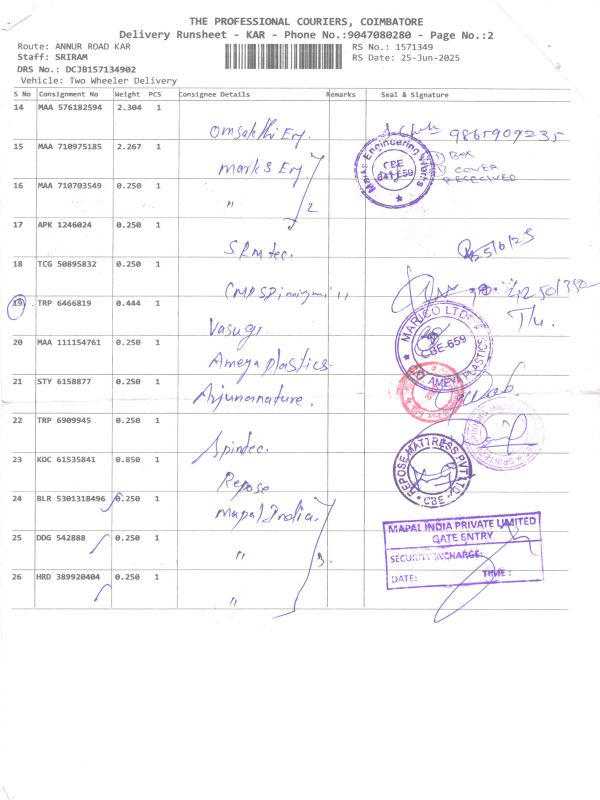 THE PROFESSIONAL COURIERS, COIMBATORE
Delivery Runsheet - KAR - Phone No.:9047080280 - Page No.:2
Route: ANNUR ROAD KAR
RS No.: 1571349
Staff: SRIRAM
RS Date: 25-Jun-2025
DRS No.: DCJB157134902
Vehicle: Two Wheeler Delivery
S No Consignment No Weight PCS Consignee Details Remarks Seal & Signature
14 MAA 576182594 2.304 1
Omsakthi Eng. 9865909235
15 MAA 710975185 2.267 1
marks Eng
16 MAA 710703549 0.250 1
" 2
Engineering Works
CBE
1) BOX
1) COVER
RECEIVED
17 APK 1246024 0.250 1
SRmtec. 25/6/25
18 TCG 50895832 0.250 1
CMP Spinning mill
19 TRP 6466819 0.444 1
Vasugi
20 MAA 111154761 0.250 1
Ameya plastics.
MARICO LTD
CBE-659
AMEYA PLASTICS
21 STY 6158877 0.250 1
Arjuna nature.
22 TRP 6909945 0.250 1
Spintec.
23 KOC 61535841 0.850 1
Repose
REPOSE MATTRESS PVT LTD
CBE
24 BLR 5301318496 0.250 1
Mapal India.
25 DDG 542888 0.250 1
" 3.
26 HRD 389920404 0.250 1
"
MAPAL INDIA PRIVATE LIMITED
GATE ENTRY
SECURITY INCHARGE:
DATE: TIME: